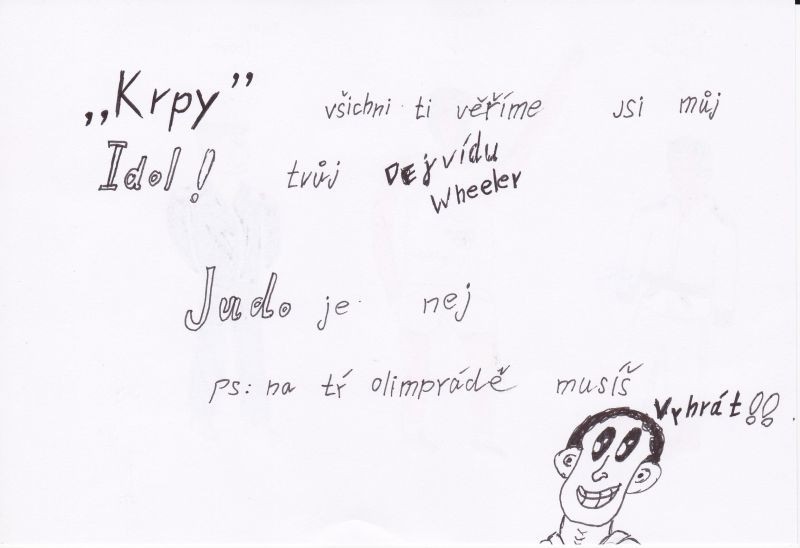 „Krpy” všichni ti věříme jsi můj
Idol! tvůj Dejvídu
Wheeler
Judo je nej
ps: na tŕ olimprádě musíš
vyhrát!!